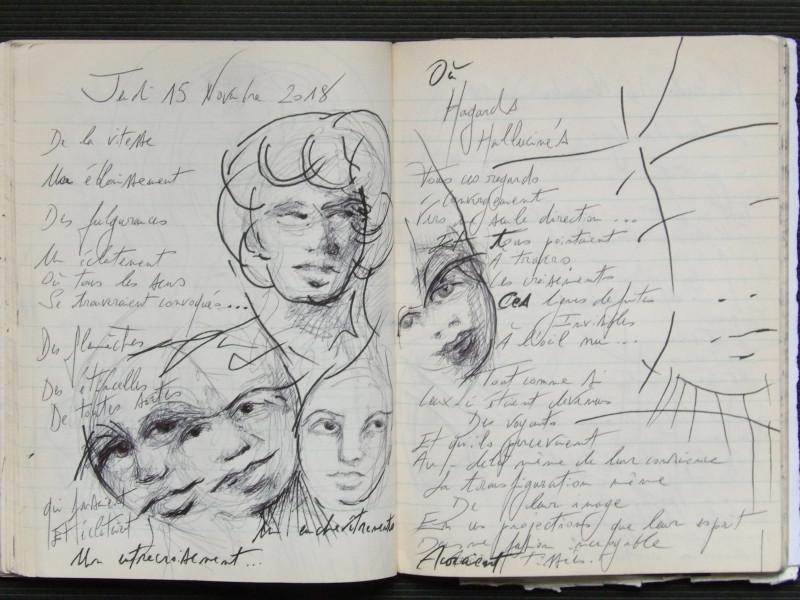 Jeudi 15 Novembre 2018
De la vitesse
Un éblouissement
Des fulgurances
Un éclatement
Où tous les sens
Se trouveraient convoqués...
Des
Des étincelles
De toutes sortes
qui
Et éclataient
Un enchevêtrement
Un entrecroisement...
Où
Hagards
Hallucinés
Tous ces regards
Convergeaient
Vers une seule direction...
Et tous pointaient
A travers
Les croisements
Ces lignes de fuites
Invisibles
À l'œil nu...
Tout comme si
Ceux-ci étaient devenus
Des voyants
Et qu'ils percevaient
Au-delà même de leur conscience
La transfiguration même
De leur image
En ces projections que leur esprit
Dans une fusion incroyable
Avaient tissées.